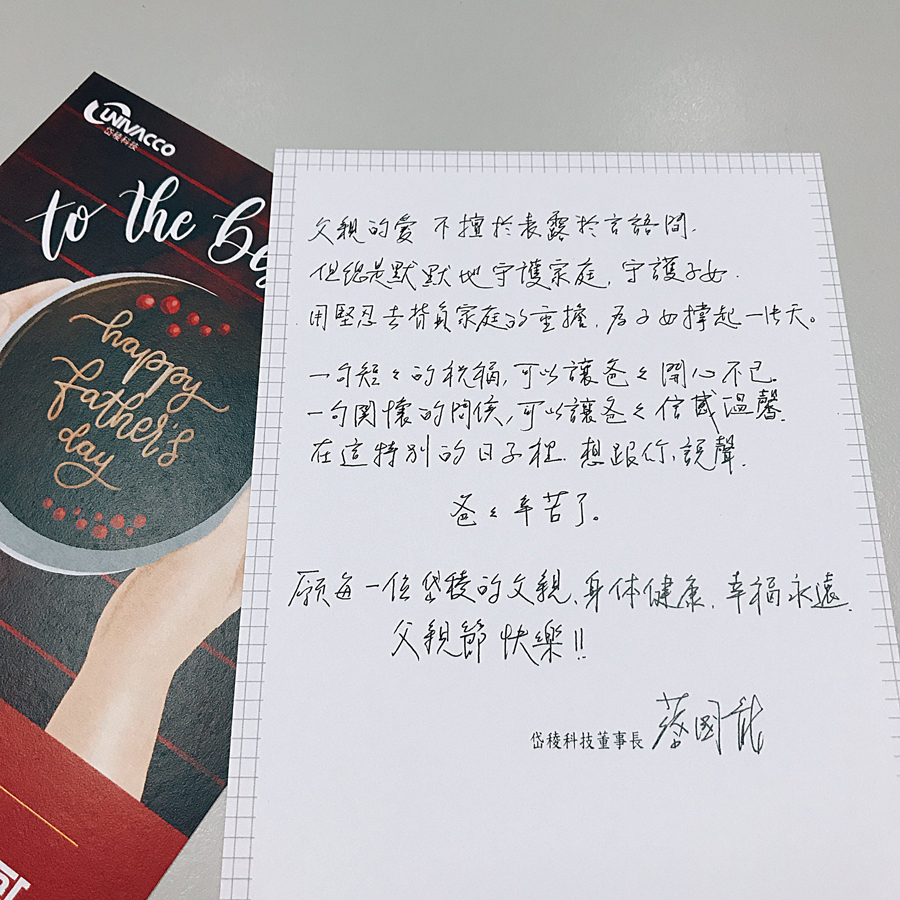 UNIVACCO
岱稜科技
to the be
happy
Father's
day
父親的愛 不擅於表露於言語間.
但總是默默地守護家庭, 守護子女.
用堅忍去背負家庭的重擔, 為子女撐起一片天。
一句短々的祝福, 可以讓爸々開心不已.
一句關懷的問候, 可以讓爸々倍感溫馨.
在這特別的日子裡, 想跟你說聲.
爸々辛苦了。
願每一位岱稜的父親, 身体健康, 幸福永遠.
父親節快樂!!
岱稜科技董事長 蔡國龍